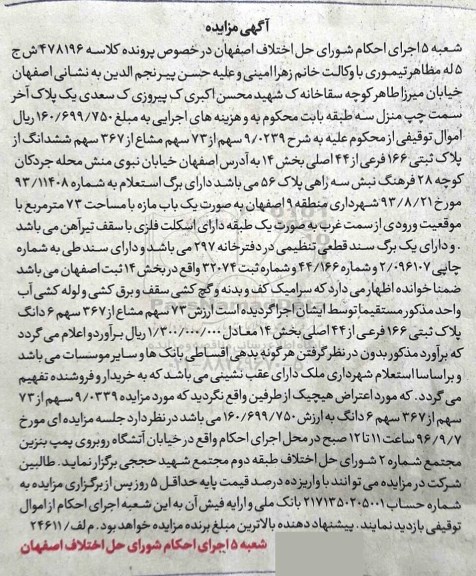 آگهی مزایده
شعبه ۵ اجرای احکام شورای حل اختلاف اصفهان در خصوص پرونده کلاسه ۴۷۸۱۹۶ ش ج
۵ له مظاهر تیموری با وکالت خانم زهرا امینی و علیه حسن پیر نجم الدین به نشانی اصفهان
خیابان میرزا طاهر کوچه سقاخانه ک شهید محسن اکبری ک پیروزی ک سعدی یک پلاک آخر
سمت چپ منزل سه طبقه بابت محکوم به و هزینه های اجرایی به مبلغ ۱۶۰/۶۹۹/۷۵۰ ریال
اموال توقیفی از محکوم علیه به شرح ۹/۰۲۳۹ سهم از ۷۳ سهم مشاع از ۳۶۷ سهم ششدانگ از
پلاک ثبتی ۱۶۶ فرعی از ۴۴ اصلی بخش ۱۴ به آدرس اصفهان خیابان نبوی منش محله جردکان
کوچه ۲۸ فرهنگ نبش سه راهی پلاک ۵۶ می باشد دارای برگ استعلام به شماره ۹۳/۱۱۴۰۸
مورخ ۹۳/۸/۲۱ شهرداری منطقه ۹ اصفهان به صورت یک باب مازه با مساحت ۷۳ مترمربع با
موقعیت ورودی از سمت غرب به صورت یک طبقه دارای اسکلت فلزی با سقف تیرآهن می باشد
. و دارای یک برگ سند قطعی تنظیمی در دفترخانه ۲۹۷ می باشد و دارای سند طی به شماره
چاپی ۲/۰۹۶۱۰۷ و شماره ۴۴/۱۶۶ و شماره ثبت ۳۲۰۷۴ واقع در بخش ۱۴ ثبت اصفهان می باشد
ضمنا خوانده اظهار می دارد که سرامیک کف و بدنه و گچ کشی سقف و برق کشی و لوله کشی آب
واحد مذکور مستقیما توسط ایشان اجرا گردیده است ارزش ۷۳ سهم مشاع از ۳۶۷ سهم ۶ دانگ
پلاک ثبتی ۱۶۶ فرعی از ۴۴ اصلی بخش ۱۴ معادل ۱/۳۰۰/۰۰۰/۰۰۰ ریال برآورد و اعلام می گردد
که برآورد مذکور بدون در نظر گرفتن هر گونه بدهی اقساطی بانک ها و سایر موسسات می باشد
و بر اساس استعلام شهرداری ملک دارای عقب نشینی می باشد که به خریدار و فروشنده تفهیم
می گردد. که مورد اعتراض هیچیک از طرفین واقع نگردید که مورد مزایده ۹/۰۳۳۹ سهم از ۷۳
سهم از ۳۶۷ سهم ۶ دانگ به ارزش ۱۶۰/۶۹۹/۷۵۰ می باشد در نظر دارد جلسه مزایده ای مورخ
۹۶/۹/۷ ساعت ۱۱ تا ۱۲ صبح در محل اجرای احکام واقع در خیابان آتشگاه روبروی پمپ بنزین
مجتمع شماره ۲ شورای حل اختلاف طبقه دوم مجتمع شهید حججی برگزار نماید. طالبین
شرکت در مزایده می توانند با واریز ده درصد قیمت پایه حداقل ۵ روز پس از برگزاری مزایده به
شماره حساب ۲۱۷۱۳۵۰۲۰۵۰۰۱ بانک ملی و ارایه فیش آن به این شعبه اجرای احکام از اموال
توقیفی بازدید نمایند. پیشنهاد دهنده بالاترین مبلغ برنده مزایده خواهد بود. م لف/۲۴۶۱۱
شعبه ۵ اجرای احکام شورای حل اختلاف اصفهان